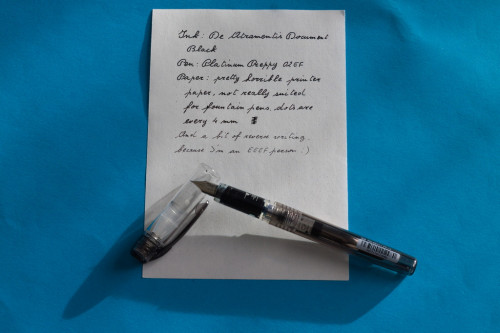 Ink: De Atramentis Document
Black
Pen: Platinum Preppy 02EF
Paper: pretty horrible printer
paper, not really suited
for fountain pens, dots are
every 4 mm
And a bit of reverse writing
because I'm an EEEF person :)